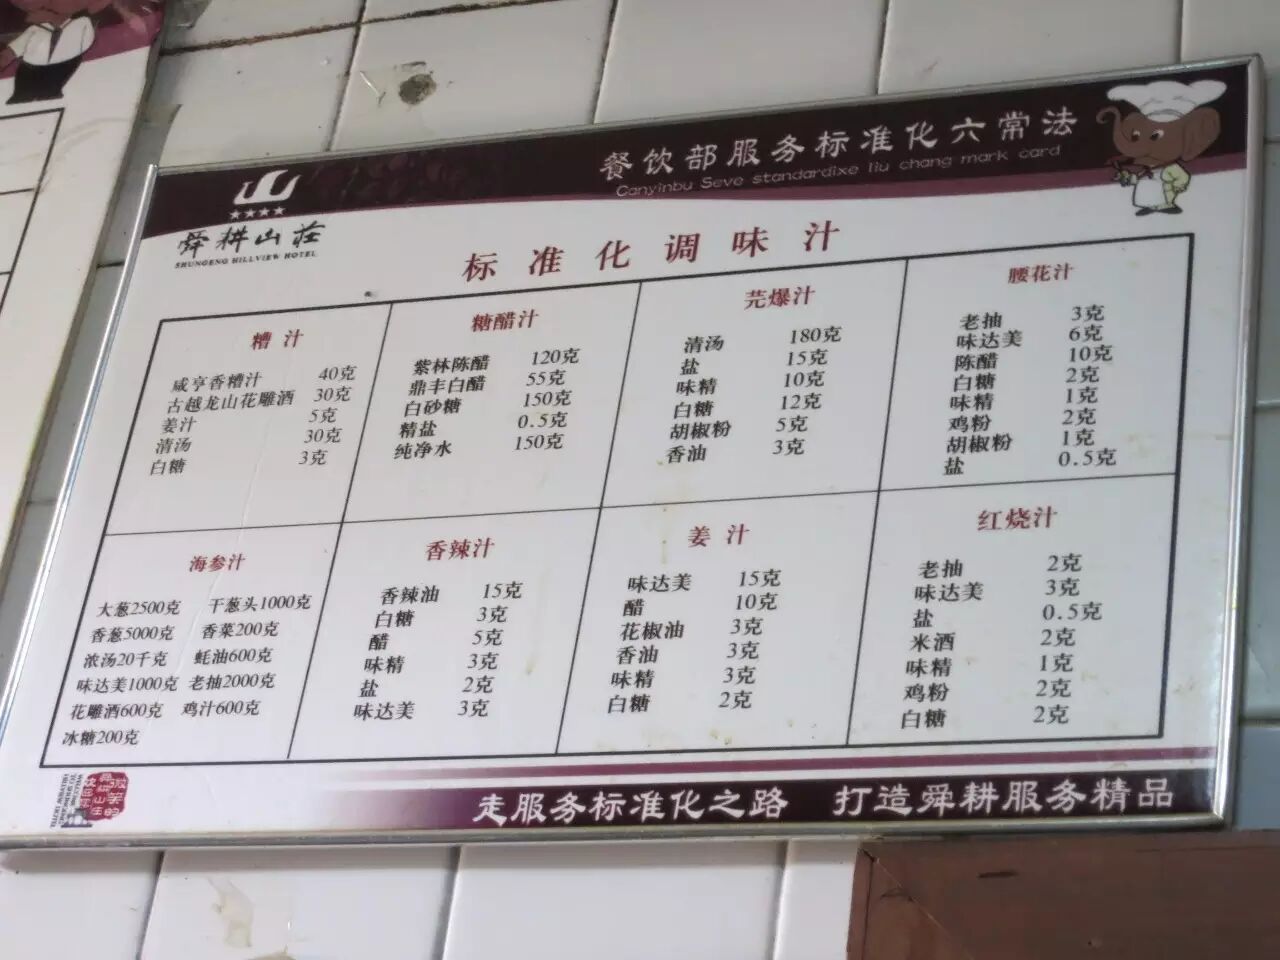 餐饮部服务标准化六常法
Canyinbu Seve standardixe liu chang mark card
★★★★
舜耕山莊
SHUNGENG HILLVIEW HOTEL
标准化调味汁
糟汁
咸亨香糟汁 40克
古越龙山花雕酒 30克
姜汁 5克
清汤 30克
白糖 3克
糖醋汁
紫林陈醋 120克
鼎丰白醋 55克
白砂糖 150克
精盐 0.5克
纯净水 150克
芫爆汁
清汤 180克
盐 15克
味精 10克
白糖 12克
胡椒粉 5克
香油 3克
腰花汁
老抽 3克
味达美 6克
陈醋 10克
白糖 2克
味精 1克
鸡粉 2克
胡椒粉 1克
盐 0.5克
海参汁
大葱2500克 干葱头1000克
香葱5000克 香菜200克
浓汤20千克 蚝油600克
味达美1000克 老抽2000克
花雕酒600克 鸡汁600克
冰糖200克
香辣汁
香辣油 15克
白糖 3克
醋 5克
味精 3克
盐 2克
味达美 3克
姜汁
味达美 15克
醋 10克
花椒油 3克
香油 3克
味精 3克
白糖 2克
红烧汁
老抽 2克
味达美 3克
盐 0.5克
米酒 2克
味精 1克
鸡粉 2克
白糖 2克
走服务标准化之路 打造舜耕服务精品